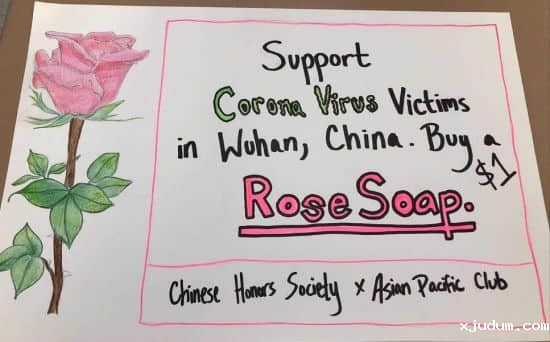 Support
Corona Virus Victims
in Wuhan, China. Buy a
$1
Rose Soap.
Chinese Honors Society x Asian Pacific Club
xjudum.com